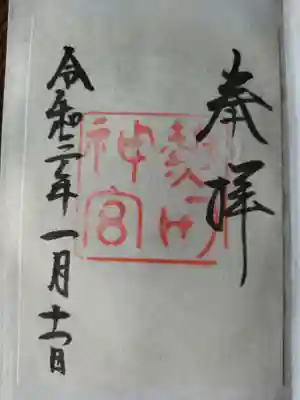 奉拝
熱田
神宮
令和二年一月十一日